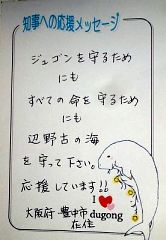 知事への応援メッセージ
ジュゴンを守るため
にも
すべての命を守るため
にも
辺野古の海
を守って下さい。
応援しています!!
I
大阪府 豊中市 dugong
在住